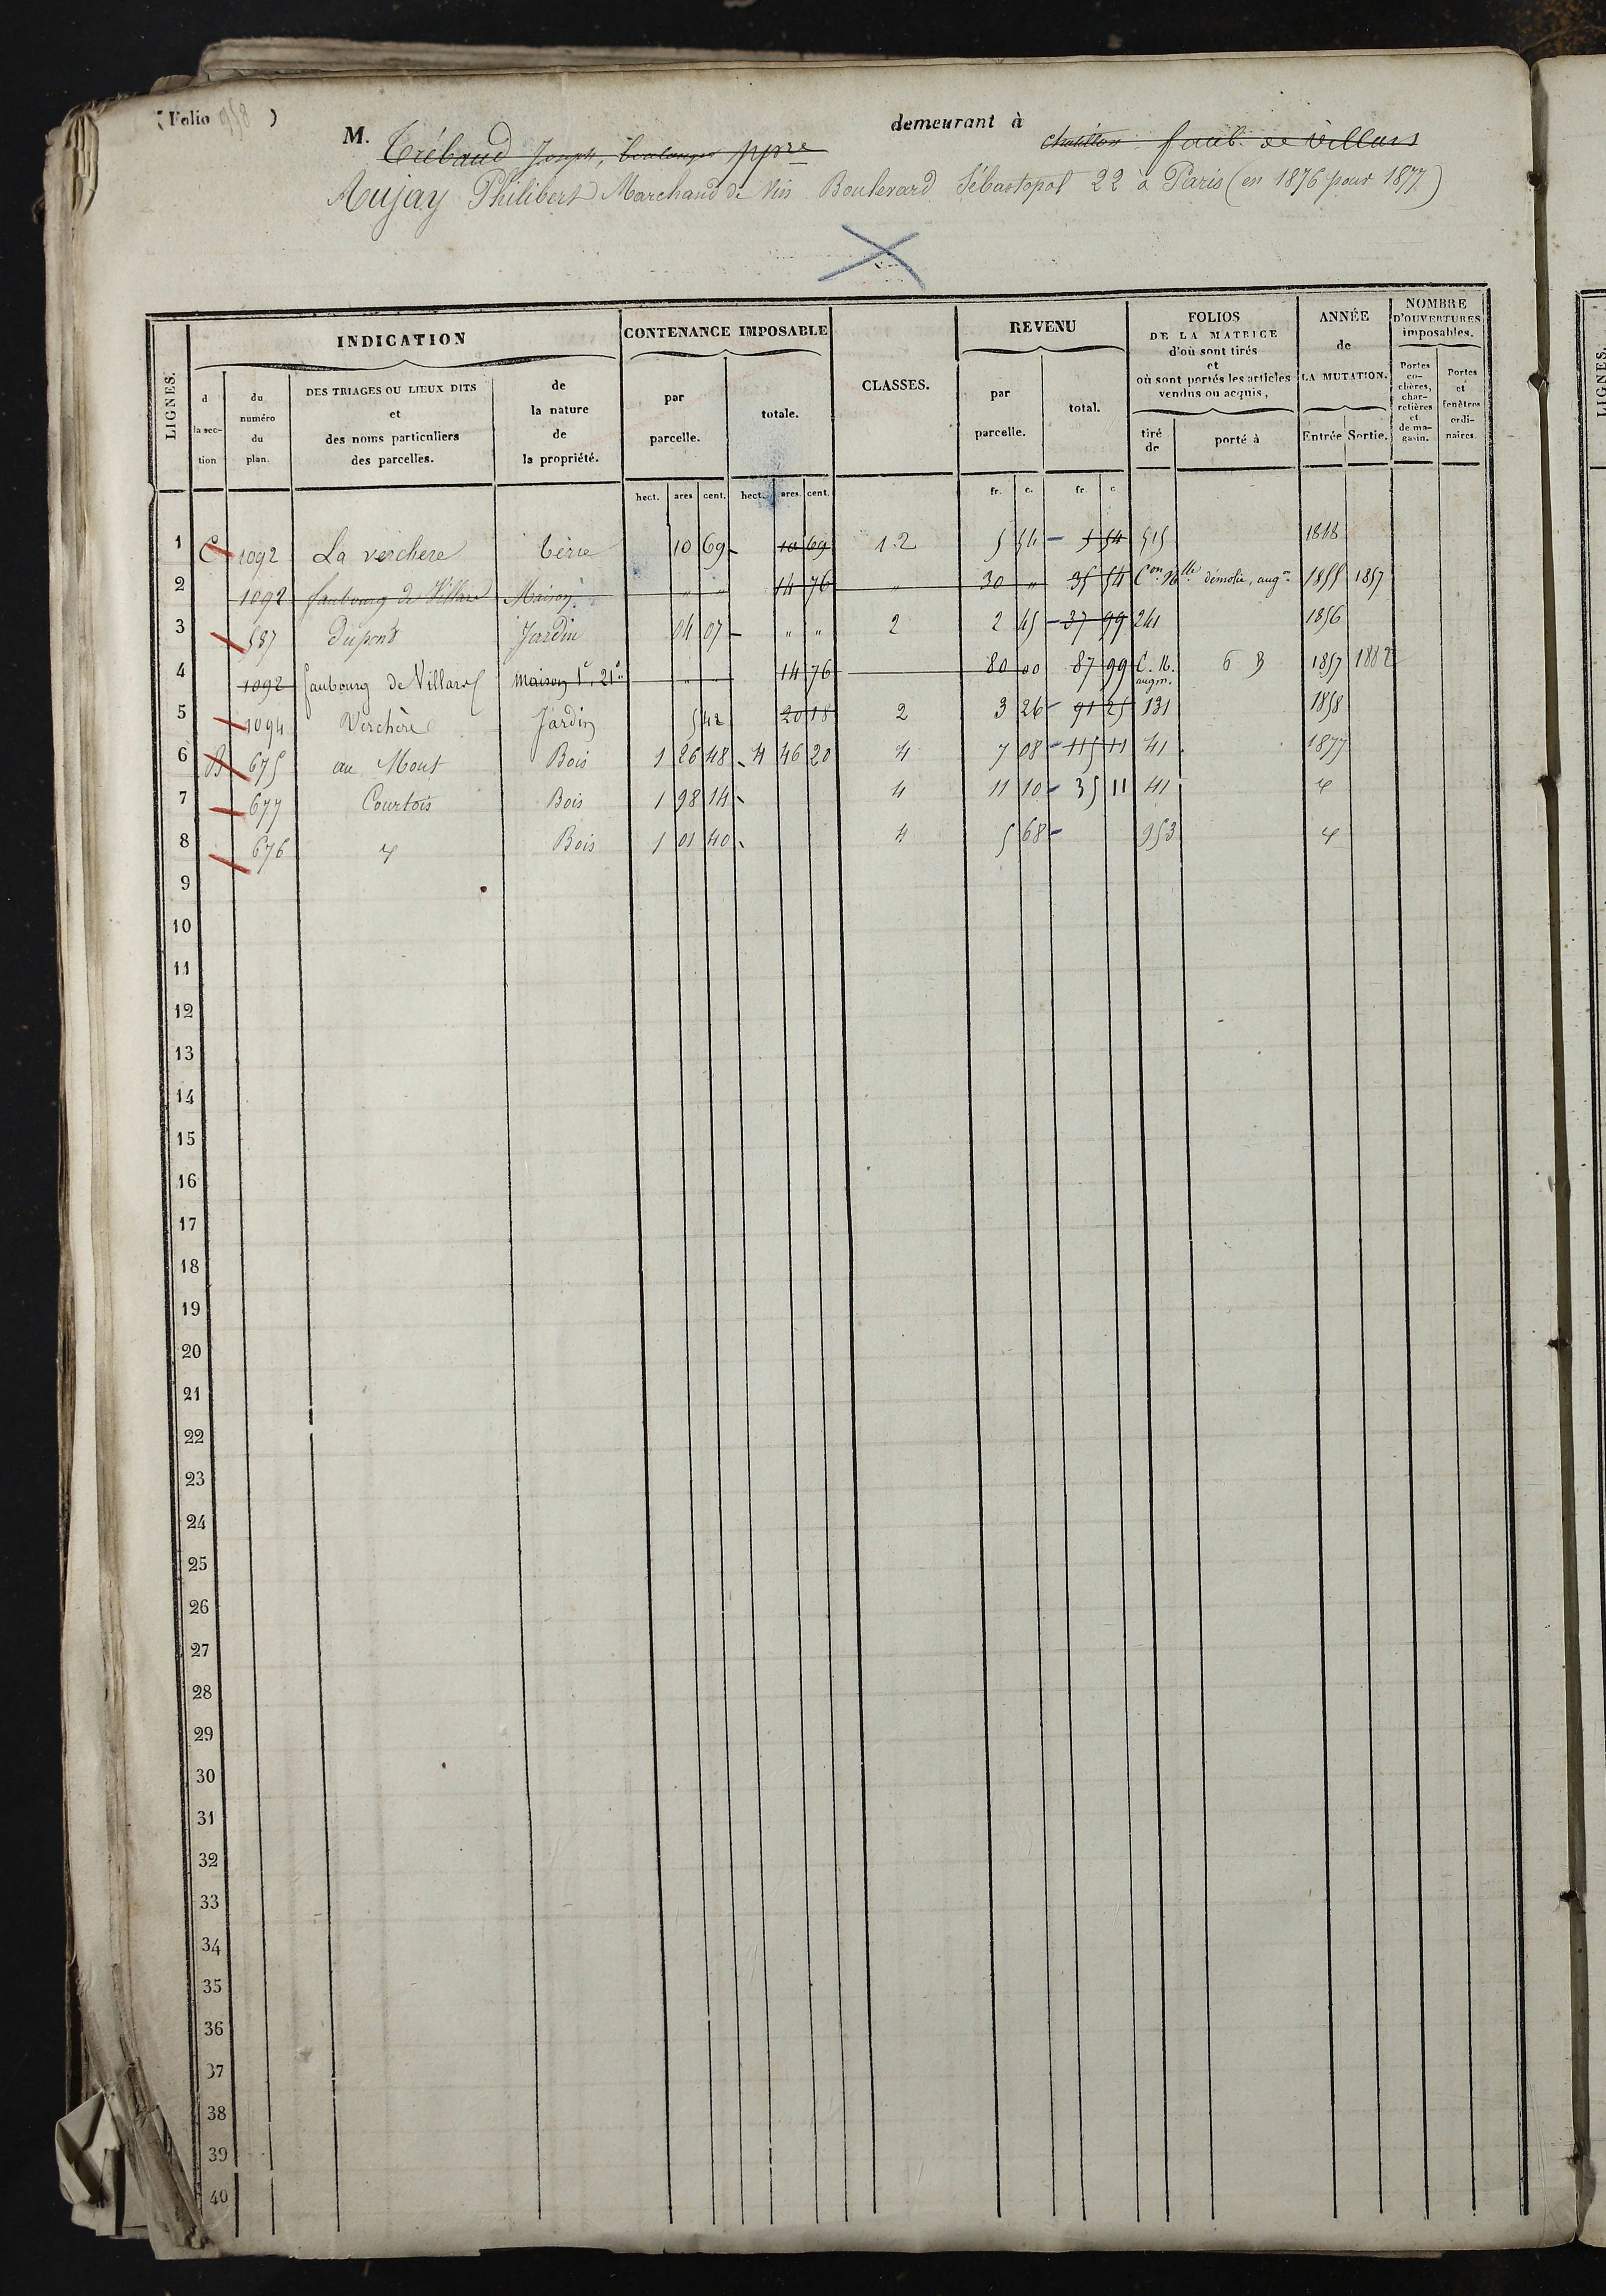 (Folio 958 )
M. Trébaud Joseph, boulanger ppre demeurant à Chatillon faub. de Villars
Aujay Philibert Marchand de Vin Boulevard Sébastopol 22 à Paris (en 1876 pour 1877)
LIGNES. INDICATION CONTENANCE IMPOSABLE CLASSES. REVENU FOLIOS DE LA MATRICE d'où sont tirés et où sont portés les articles vendus ou acquis, ANNÉE de LA MUTATION. NOMBRE D'OUVERTURES imposables.
d la section du numéro du plan. DES TRIAGES OU LIEUX DITS et des noms particuliers des parcelles. de la nature de la propriété. par parcelle. totale. par parcelle. total. tiré de porté à Entrée Sortie. Portes cochères, charretières et de magasin. Portes et fenêtres ordinaires.
hect. ares cent. hect. ares. cent. fr. c. fr. c
1 C 1092 La verchere Terre 10 69 10 69 1.2 5 54 5 54 515 1848
2 1092 faubourg de Villars Maison " " 14 76 " 30 " 35 54 Con. Nlle démolie, augon 1855 1857
3 587 Dupont Jardin 04 07 " " 2 2 45 37 99 241 1856
4 1092 faubourg de Villars maison 1e, 21e " " 14 76 80 00 87 99 C. N. augm. 6 B 1857 1882
5 1094 Verchère Jardin 5 42 20 18 2 3 26 91 25 131 1858
6 B 675 au Mont Bois 1 26 48 4 46 20 4 7 08 115 11 41 1877
7 677 Courtois Bois 1 98 14 4 11 10 35 11 41 "
8 676 " Bois 1 01 40 4 5 68 953 "
9
10
11
12
13
14
15
16
17
18
19
20
21
22
23
24
25
26
27
28
29
30
31
32
33
34
35
36
37
38
39
40
LIGNES.